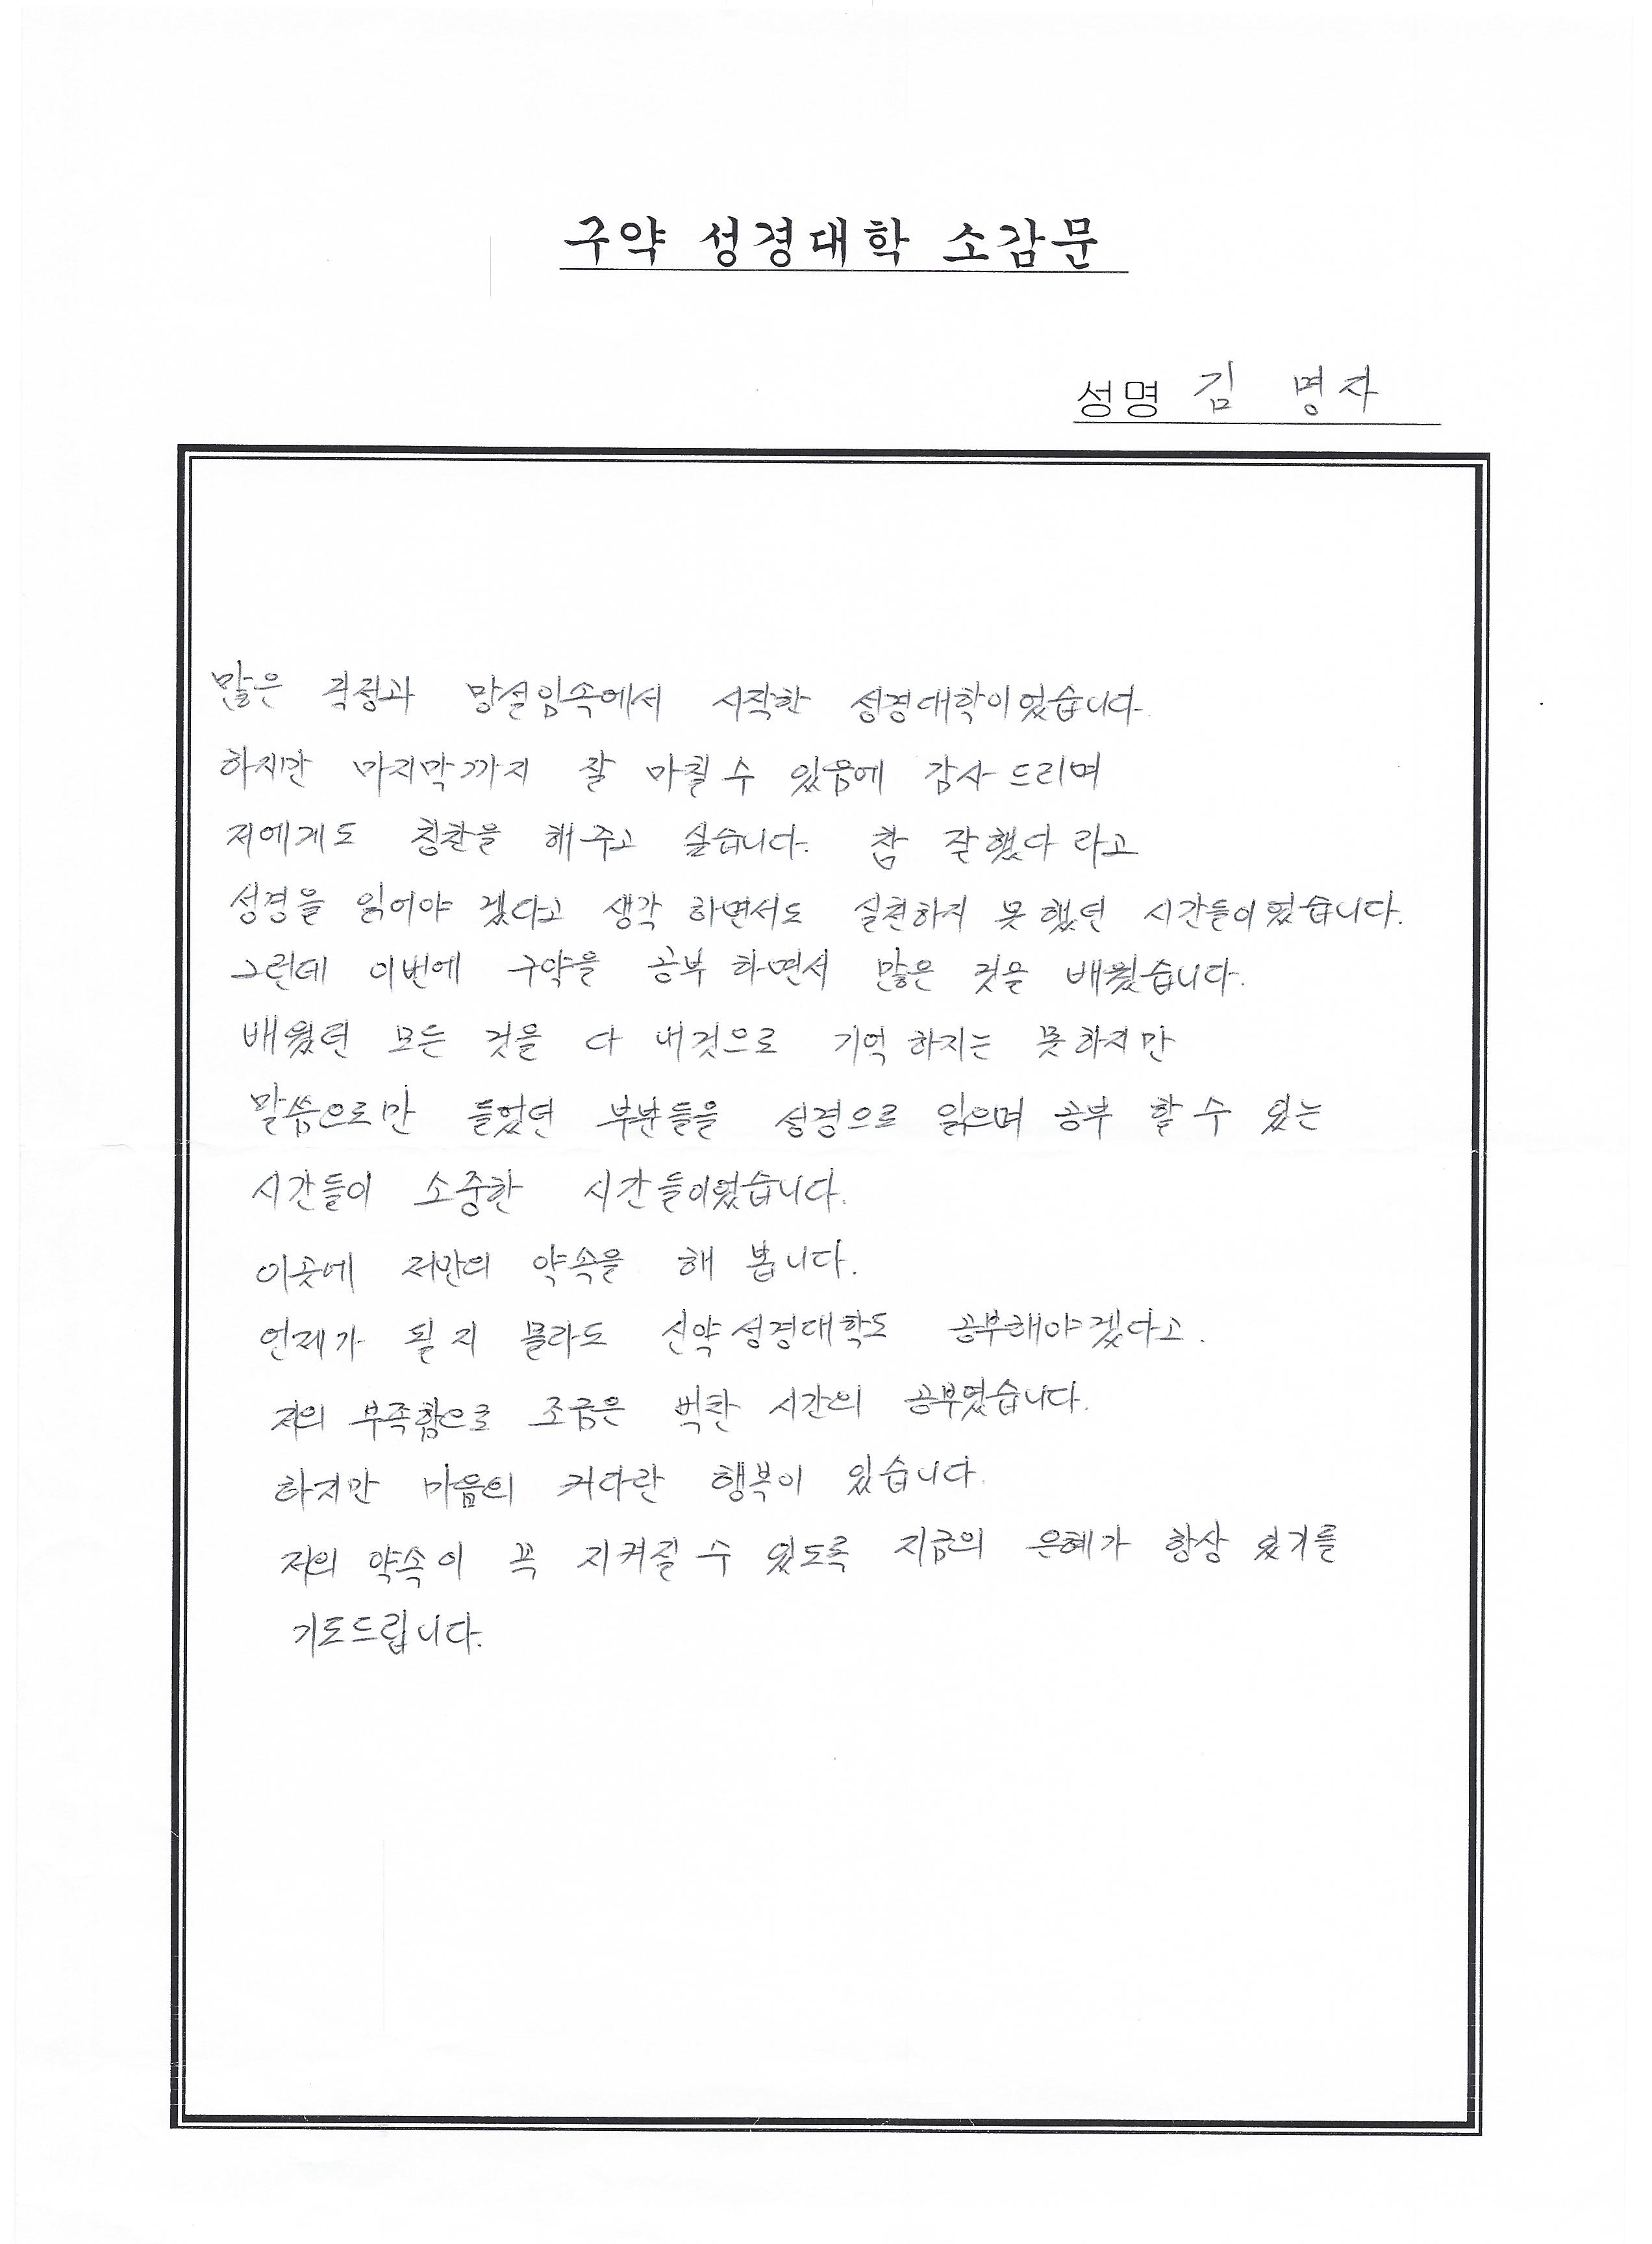 구약 성경대학 소감문
성명 김 명자
많은 걱정과 망설임속에서 시작한 성경대학이었습니다.
하지만 마지막까지 잘 마칠 수 있음에 감사드리며
저에게도 칭찬을 해주고 싶습니다. 참 잘했다 라고
성경을 읽어야 겠다고 생각 하면서도 실천하지 못했던 시간들이었습니다.
그런데 이번에 구약을 공부 하면서 많은 것을 배웠습니다.
배웠던 모든 것을 다 내것으로 기억 하지는 못하지만
말씀으로만 들었던 부분들을 성경으로 읽으며 공부 할 수 있는
시간들이 소중한 시간들이었습니다.
이곳에 저만의 약속을 해 봅니다.
언제가 될 지 몰라도 신약성경대학도 공부해야겠다고.
저의 부족함으로 조금은 벅찬 시간의 공부였습니다.
하지만 마음의 커다란 행복이 있습니다.
저의 약속이 꼭 지켜질 수 있도록 지금의 은혜가 항상 있기를
기도드립니다.